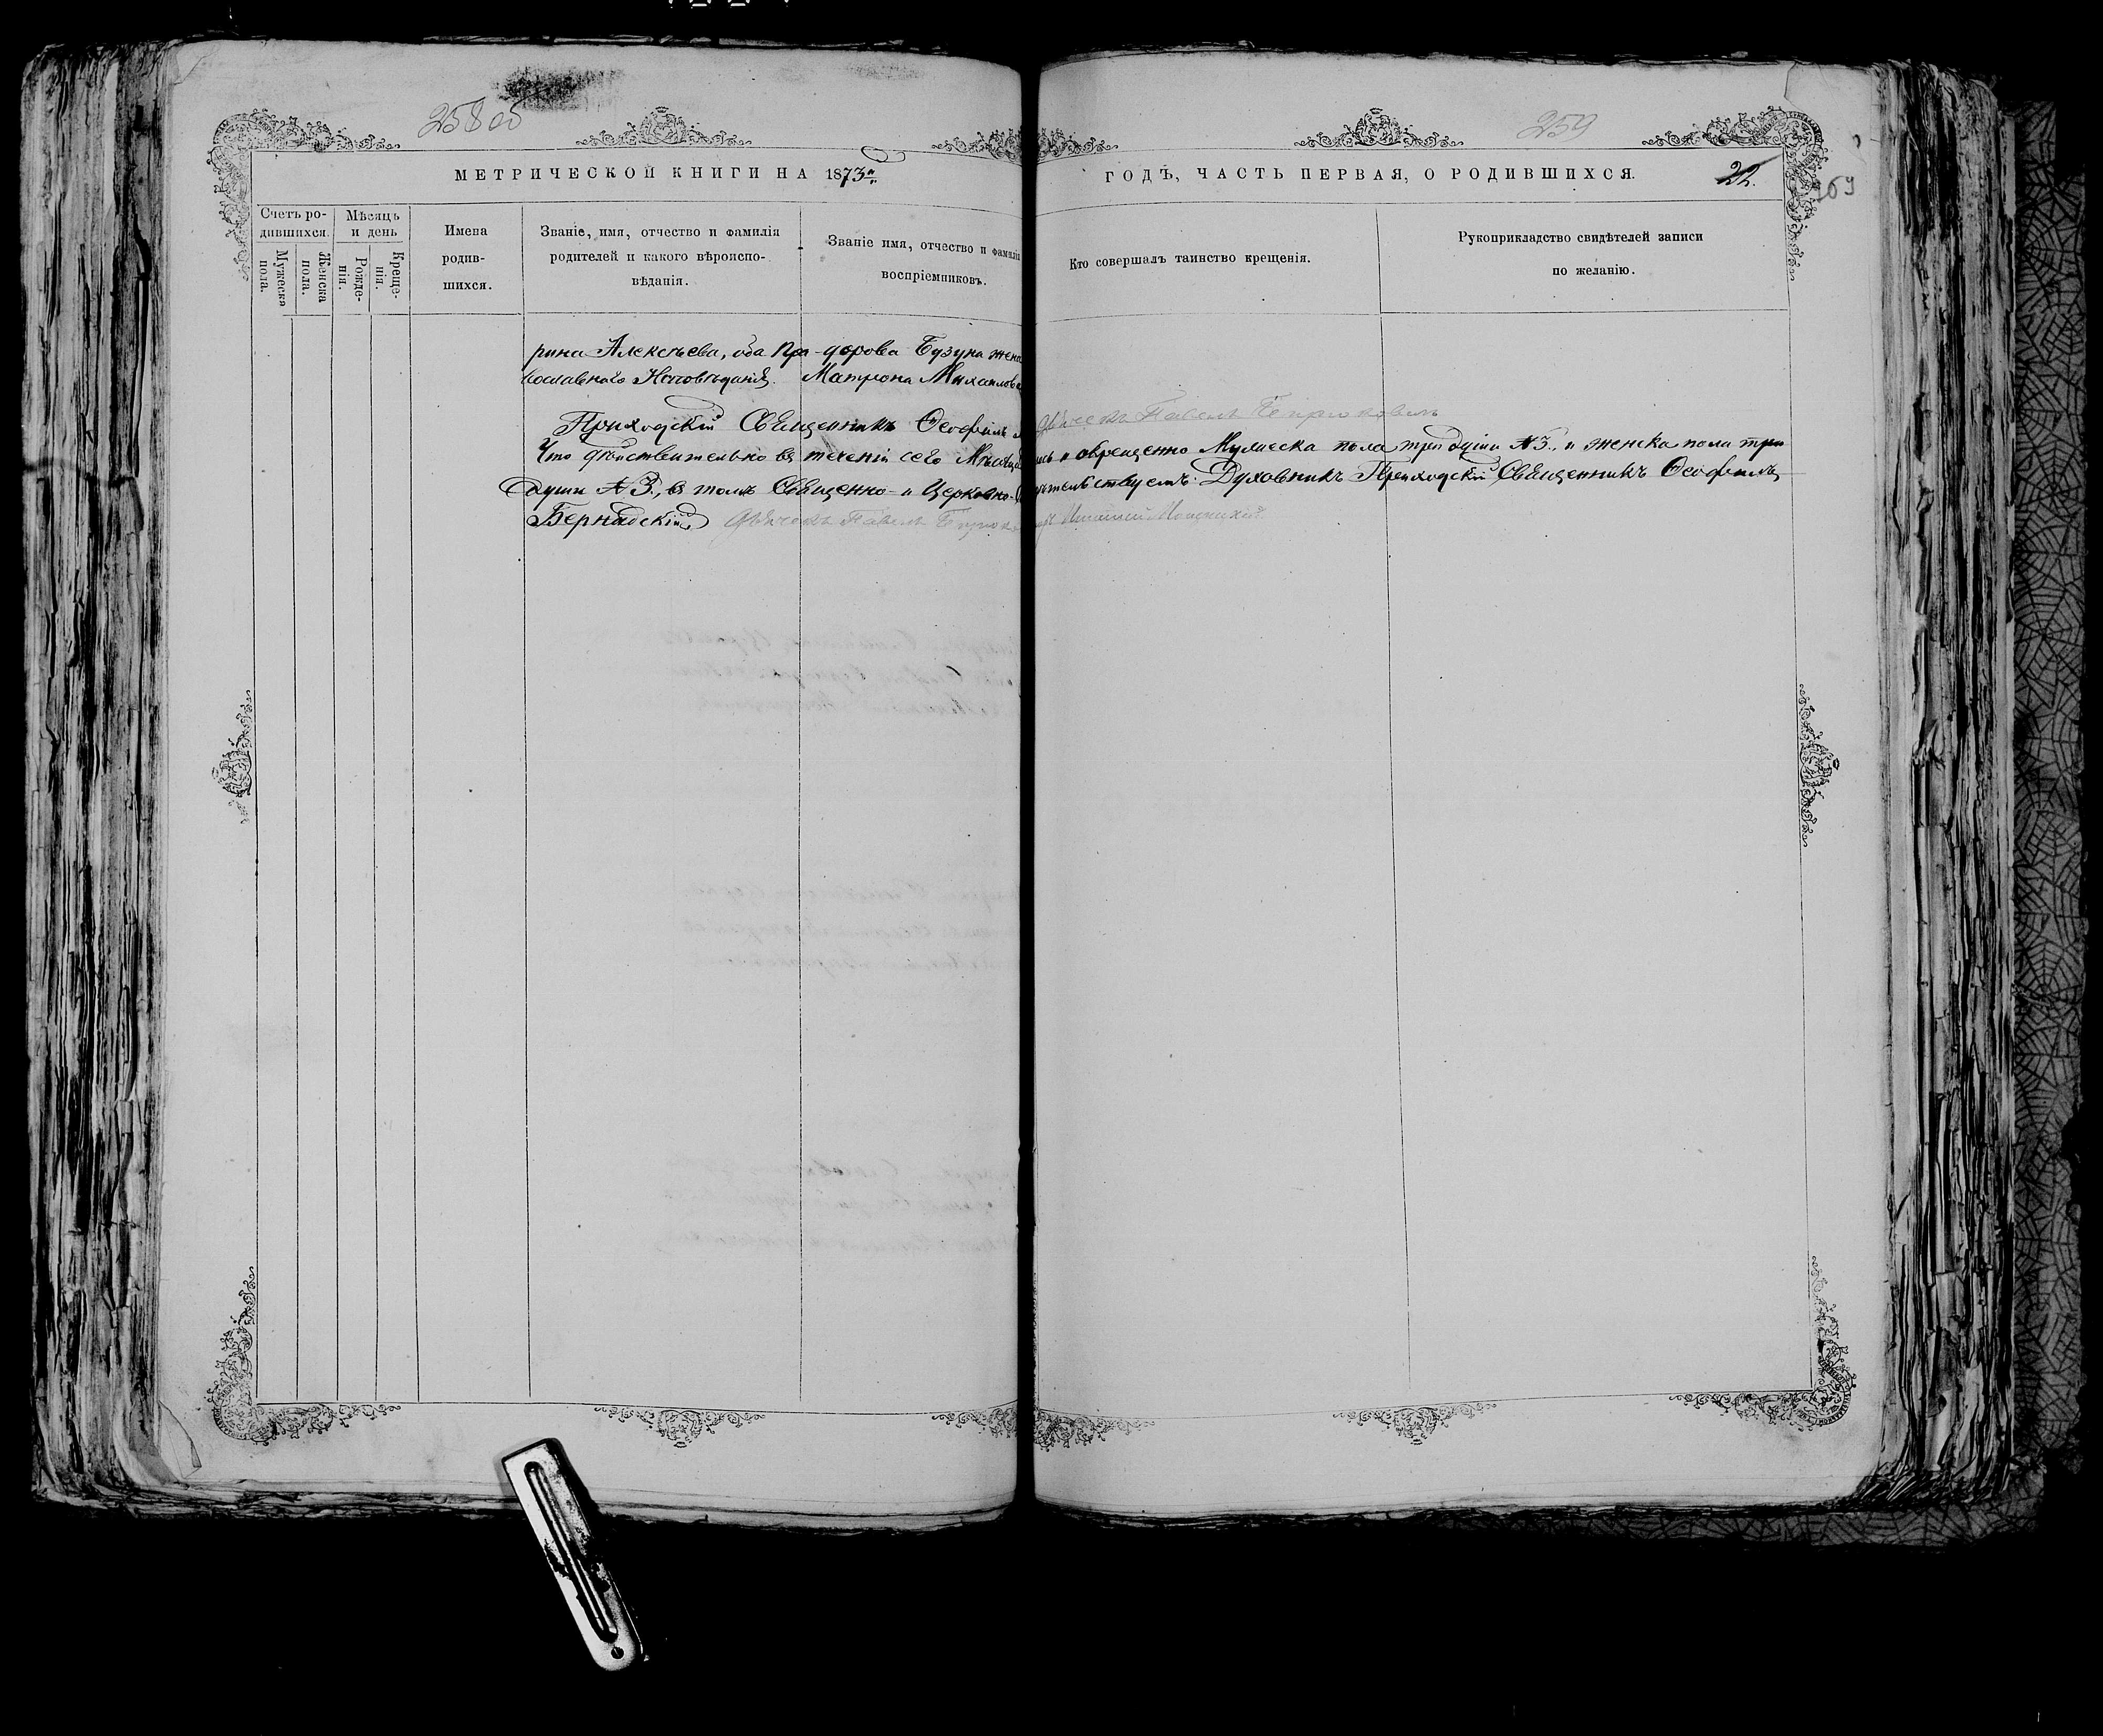 258 об
259
МЕТРИЧЕСКОЙ КНИГИ НА 1873й
ГОДЪ, ЧАСТЬ ПЕРВАЯ, О РОДИВШИХСЯ.
22.
Счетъ ро-
дившихся.
Мужеска
пола.
Женска
пола.
Мѣсяцъ
и день
Рожде-
нія.
Креще-
нія.
Имена
родив-
шихся.
Званіе, имя, отчество и фамилія
родителей и какого вѣроиспо-
вѣданія.
Званіе имя, отчество и фамилія
воспріемниковъ.
Кто совершалъ таинство крещенія.
Рукоприкладство свидѣтелей записи
по желанію.
рина Алексѣева, оба Пра-
вославнаго Исповѣданія.
дорова Бузуна жена
Матрона Михаилова
Приходскій Священникъ Ѳеофилъ
дьячекъ Павелъ
Что дѣйствительно въ теченіи сего Мѣсяца и окрещенно Мужеска пола три души №3. и женска пола три
души №3., въ томъ Священно- и Церковно- Духовникъ Приходскій Священникъ Ѳеофилъ
Бернадскій дьячекъ Павелъ